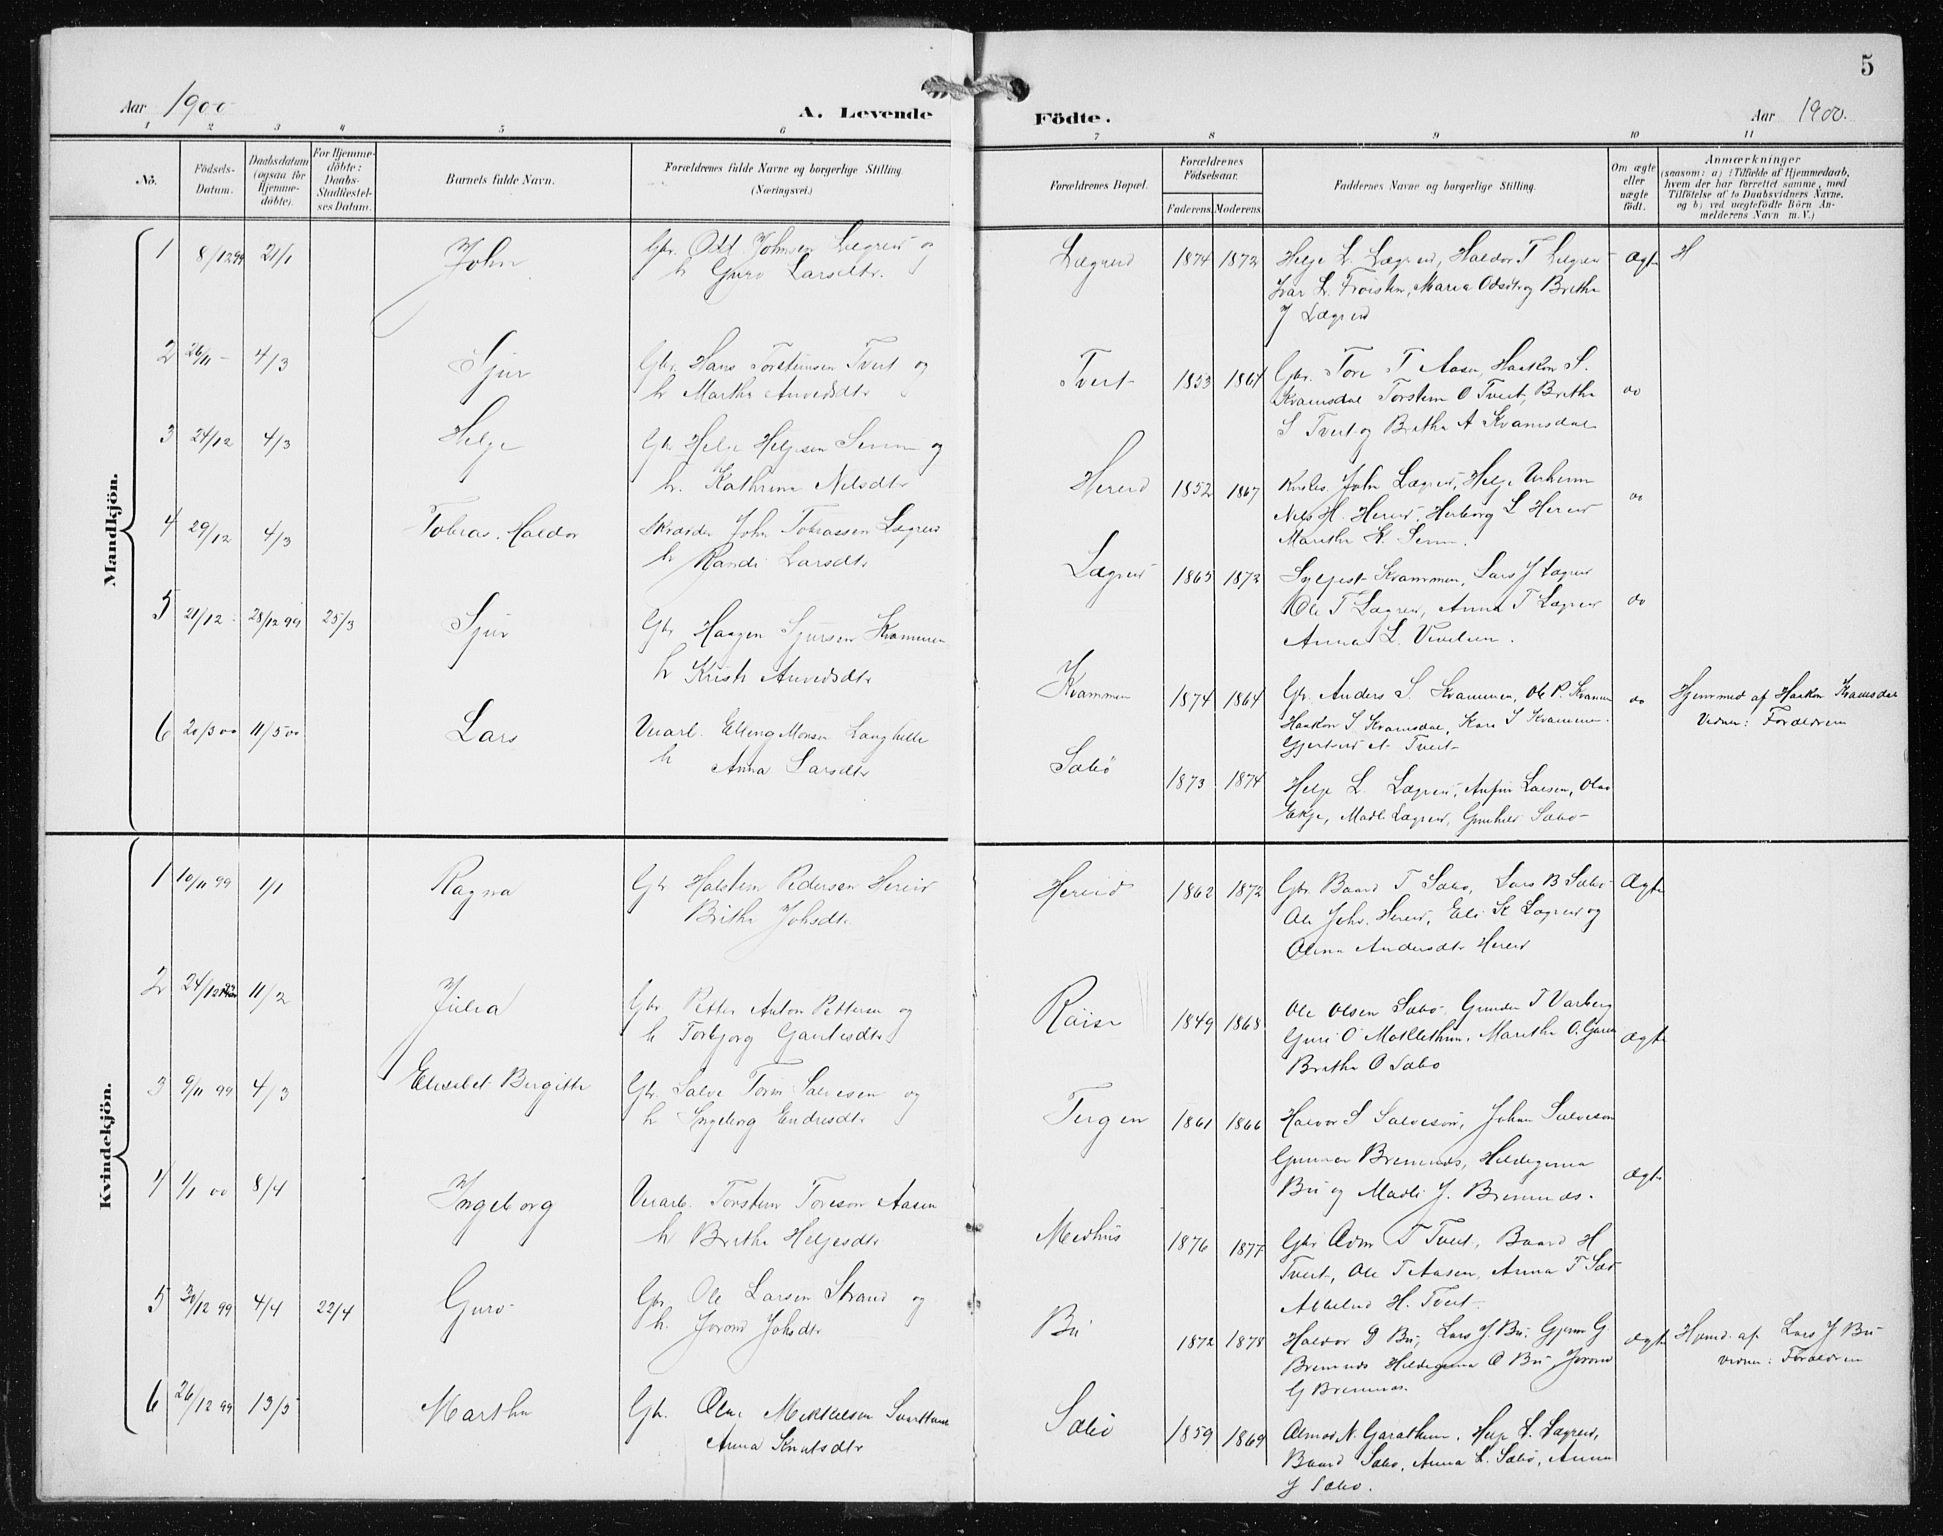 5
Aar 1900
A. Levende
Födte.
Aar 1900.
1 2 3 4 5 6 7 8 9 10 11
No.
Födsels-
Datum.
Daabsdatum
(ogsaa for
Hjemme-
döbte).
For Hjemme-
döbte:
Daabs-
Stadfæstel-
ses Datum.
Barnets fulde Navn.
Forældrenes fulde Navne og borgerlige Stilling
(Næringsvei.)
Forældrenes Bopæl.
Forældrenes
Födselsaar.
Faderens Moderens
Faddernes Navne og borgerlige Stilling.
Om ægte
eller
uægte
födt.
Anmærkninger
(saasom: a) i Tilfælde af Hjemmedaab,
hvem der har forrettet samme, med
Tilföielse af to Daabsvidners Navne,
og b) ved uægtefödte Börn An-
melderens Navn m. V.)
Mandkjön.
1 8/12 99 21/1 John Gbr. Odd Johnsen Lægreid og
h Guro Larsdtr.
Lægreid 1874 1872 Helje L. Lægreid, Haldor T Lægreid Ægte H
Ivar L. Froisten, Maria Odsdtr og Britha
J Lægreid
2 26/11 - 4/3 Sjur Gbr. Hans Torsteinsen Tveit og
h Martha Arvedsdtr
Tveit 1853 1864 Gbr. Tore T Aasen, Haakon S.
Kvamsdal Torstein O Tveit, Britha
S Tveit og Britha A Kvamsdal
do
3 24/12 4/3 Helge Gb. Helje Heljesen og
h. Kathrina Nilsdtr
Hereid 1852 1867 John Lægreid, Helje
Nils H. Hereid, Herborg L Hereid
Maritha K.
do
4 29/12 4/3 Tobias Haldor Skrædder John Tobiassen Lægreid
h Randi Larsdtr
Lægreid 1865 1873 Sylfest Kvammen, Lars J Lægreid
Ole T Lægreid, Anna T Lægreid
Anna L.
do
5 21/12 28/12 99 25/3 Sjur Gbr Haagen Sjursen Kvammen
h Kristi Arvedsdtr
Kvammen 1874 1864 Gbr. Anders S. Kvammen, Ole P. Kvammen
Haakon S Kvamsdal, Kari S Kvammen.
Gjertrud A Tveit
do Hjemmed af Haakon Kvamsdal
Vidner: Forældrene
6 20/3 00 11/5 00 Lars Veiarb. Elling Monsen Langhelle
h Anna Larsdtr
Sæbø 1873 1874 Helje L. Lægreid, Anfin Larsen, Olav
Eikje, Madli Lægreid, Gunhild Sæbø
Kvindekjön.
1 10/11 99 1/1 Ragna Gbr Halstein Pedersen Hereid
Britha Johsdtr
Hereid 1862 1872 Gbr. Baard T Sæbø, Lars B Sæbø Ægte
Ole Johs. Hereid, Eli K Lægreid og
Olina Andersdtr Hereid
2 24/12 99 11/2 Julia Gbr Petter Anton Pettersen og
h Torbjorg Gautesdtr
Røise 1849 1868 Ole Olsen Sæbø, Gunder T Varberg
Guri O Motlethun, Maritha O. Garen
Britha O Sæbø
Ægte
3 9/11 99 4/3 Elisabet Bergitte Gbr. Salve Torm Salvesen og
h Ingeborg Endresdtr
Tegen 1861 1866 Haldor S Salveson, Johan Salveson
Gunnar Bremnes, Hildegunna
Bu og Madli J. Bremnes.
Ægte
4 1/1 00 8/4 Ingeborg Veiarb. Torstein Toreson Aasen
h Britha Heljesdtr
Medhus 1876 1877 Gbr Odm T Tveit, Baard H
Tveit, Ole T Aasen, Anna T Sæbø
H. Tveit
5 30/12 99 4/4 22/4 Guro Gbr Ole Larsen Strand og
h. Jorond Johsdtr
Bu 1872 1878 Haldor G Bu, Lars J. Bu, Gjermund G
Bremnes Hildegunna O Bu, Jorond
G Bremnes.
Ægte Hjemd. af Lars J Bu
Vidner: Forældrene
6 26/12 99 13/5 Martha Gbr. Elias Mikkelsen
Anna Knutsdtr
Sæbø 1859 1869 N. Garathun, Helje L. Lægreid,
Baard Sæbø, Anna L. Sæbø, Anna
J Sæbø.